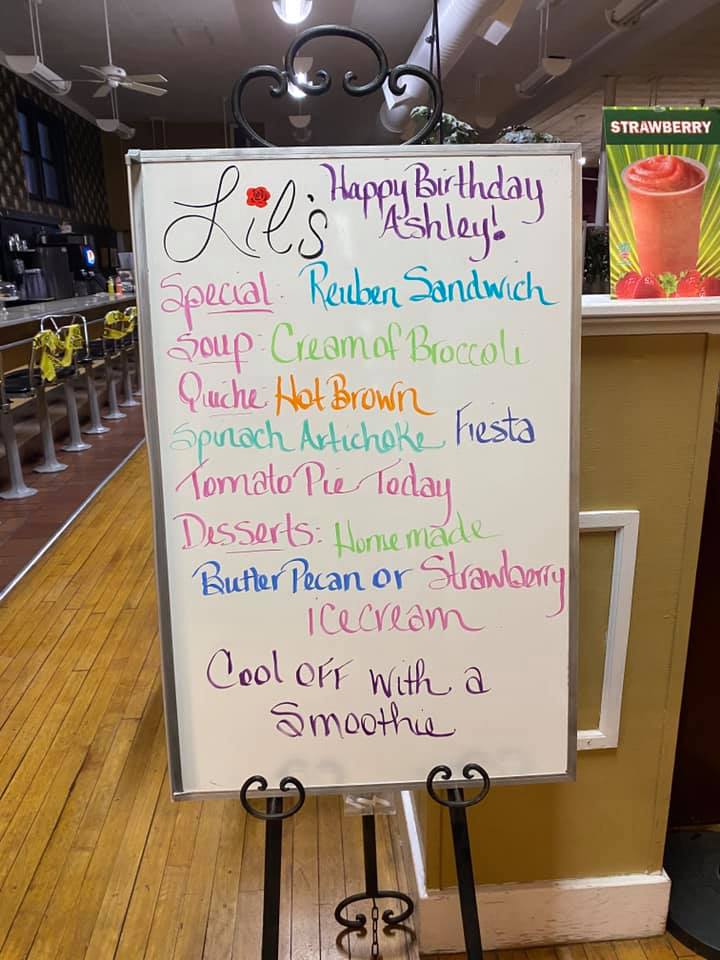 Lil's Happy Birthday
Ashley!
Special: Reuben Sandwich
Soup: Cream of Broccoli
Quiche: Hot Brown
Spinach Artichoke Fiesta
Tomato Pie Today
Desserts: Homemade
Butter Pecan or Strawberry
icecream
Cool OFF with a
Smoothie
STRAWBERRY